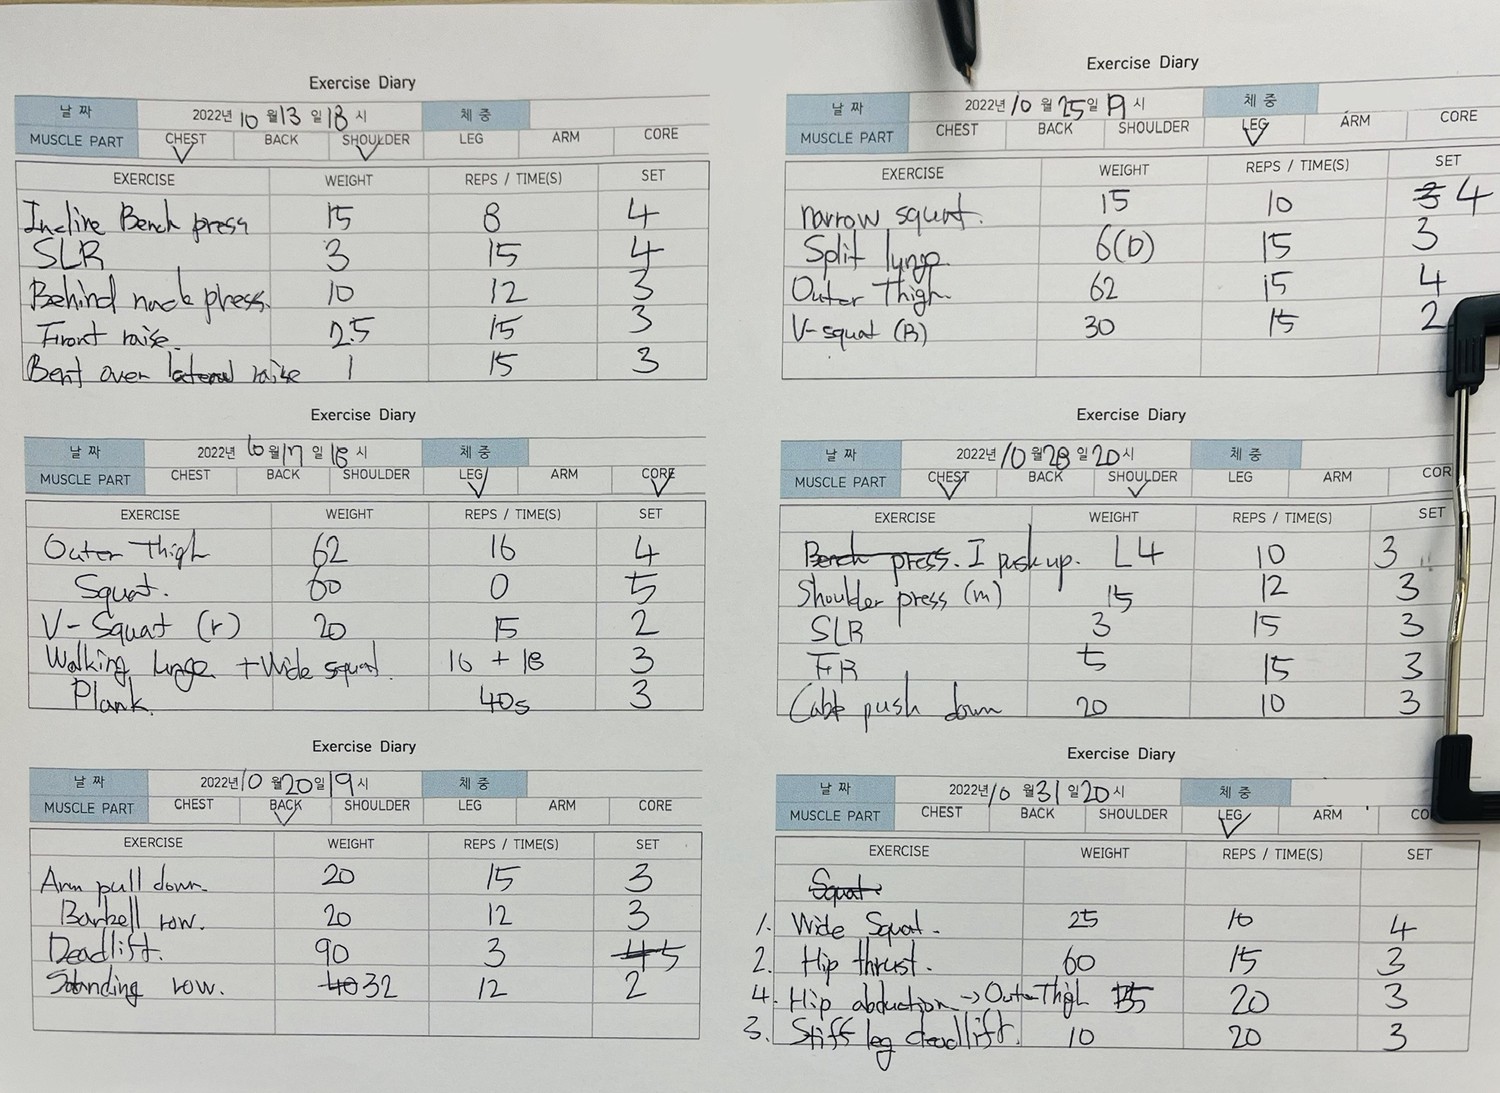 Exercise Diary
날 짜 2022년 10 월 13 일 18 시 체 중
MUSCLE PART CHEST BACK SHOULDER LEG ARM CORE
EXERCISE WEIGHT REPS / TIME(S) SET
Incline Bench press 15 8 4
SLR 3 15 4
Behind neck press. 10 12 3
Front raise. 2.5 15 3
Bent over lateral raise 1 15 3
Exercise Diary
날 짜 2022년 10 월 17 일 18 시 체 중
MUSCLE PART CHEST BACK SHOULDER LEG ARM CORE
EXERCISE WEIGHT REPS / TIME(S) SET
Outer Thigh 62 16 4
Squat. 60 0 5
V-Squat (r) 20 15 2
Walking lunge + Wide squat. 16 + 18 3
Plank. 40s 3
Exercise Diary
날 짜 2022년 10 월 20 일 19 시 체 중
MUSCLE PART CHEST BACK SHOULDER LEG ARM CORE
EXERCISE WEIGHT REPS / TIME(S) SET
Arm pull down. 20 15 3
Barbell row. 20 12 3
Deadlift. 90 3 4 5
Standing row. 40 32 12 2
Exercise Diary
날 짜 2022년 10 월 25 일 19 시 체 중
MUSCLE PART CHEST BACK SHOULDER LEG ARM CORE
EXERCISE WEIGHT REPS / TIME(S) SET
narrow squat. 15 10 3 4
Split lunge 6(D) 15 3
Outer Thigh. 62 15 4
V-squat (R) 30 15 2
Exercise Diary
날 짜 2022년 10 월 28 일 20 시 체 중
MUSCLE PART CHEST BACK SHOULDER LEG ARM COR
EXERCISE WEIGHT REPS / TIME(S) SET
Bench press. I push up. L4 10 3
Shoulder press (m) 15 12 3
SLR 3 15 3
FR 5 15 3
Cable push down 20 10 3
Exercise Diary
날 짜 2022년 10 월 31 일 20 시 체 중
MUSCLE PART CHEST BACK SHOULDER LEG ARM CO
EXERCISE WEIGHT REPS / TIME(S) SET
Squat.
1. Wide Squat. 25 10 4
2. Hip thrust. 60 15 3
4. Hip abduction → Outer Thigh 55 20 3
3. Stiff leg deadlift. 10 20 3